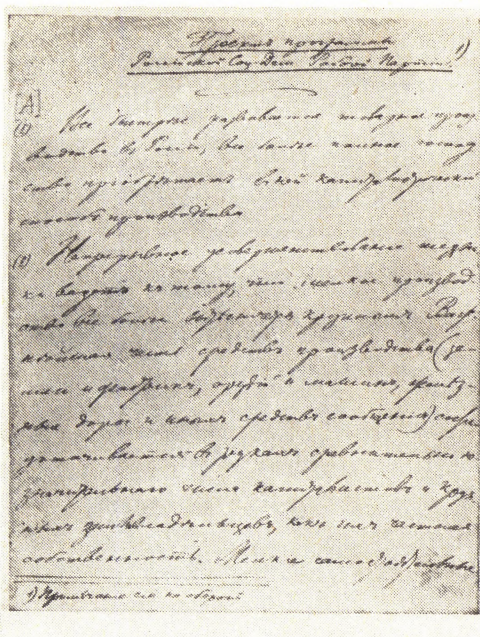 Проектъ программы 1)
Россійской Соц. Дем. Рабочей Партіи.
[А]
(1) Все быстрее развивается товарное произ-
водство въ Россіи, все более полное господ-
ство пріобретаетъ въ ней капиталистическій
способъ производства.
(2) Непрерывное усовершенствованіе техни-
ки ведетъ къ тому, что мелкое производ-
ство все более вытесняется крупнымъ. Важ-
нейшая часть средствъ производства (зе-
мли и фабрикъ, орудій и машинъ, желез-
ныхъ дорогъ и иныхъ средствъ сообщенія) сосре-
доточивается въ рукахъ сравнительно не-
значительнаго числа капиталистовъ и круп-
ныхъ землевладельцевъ, какъ ихъ частная
собственность. Мелкие самостоятельные
1) Примечанія см. на обороте